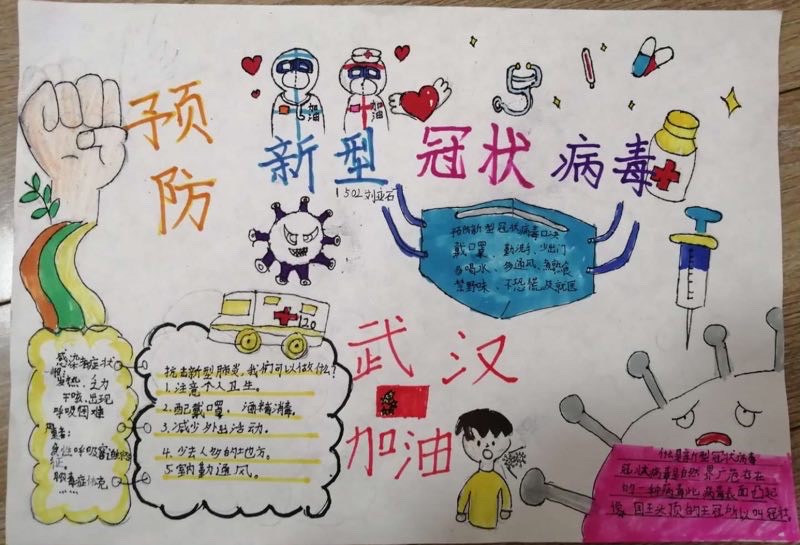 预防
新型 冠状 病毒
加油
加油
1502 刘亚石
预防新型冠状病毒口决
戴口罩、勤洗手、少出门
多喝水、多通风、煮熟食
禁野味、不恐慌、及就医
120
抗击新型肺炎,我们可以做什么?
1.注意个人卫生。
2.配戴口罩,酒精消毒。
3.减少外出活动。
4.少去人多的地方。
5.室勤通风。
感染者症状
发热、乏力
干咳、出现
呼吸困难
重者:
急性呼吸窘迫综合
征。
脓毒症休克
……
武汉
加油
什么是新型冠状病毒
冠状病毒自然界广泛存在
的一种病毒此病毒表面凸起
像国王头顶的王冠所以叫冠状